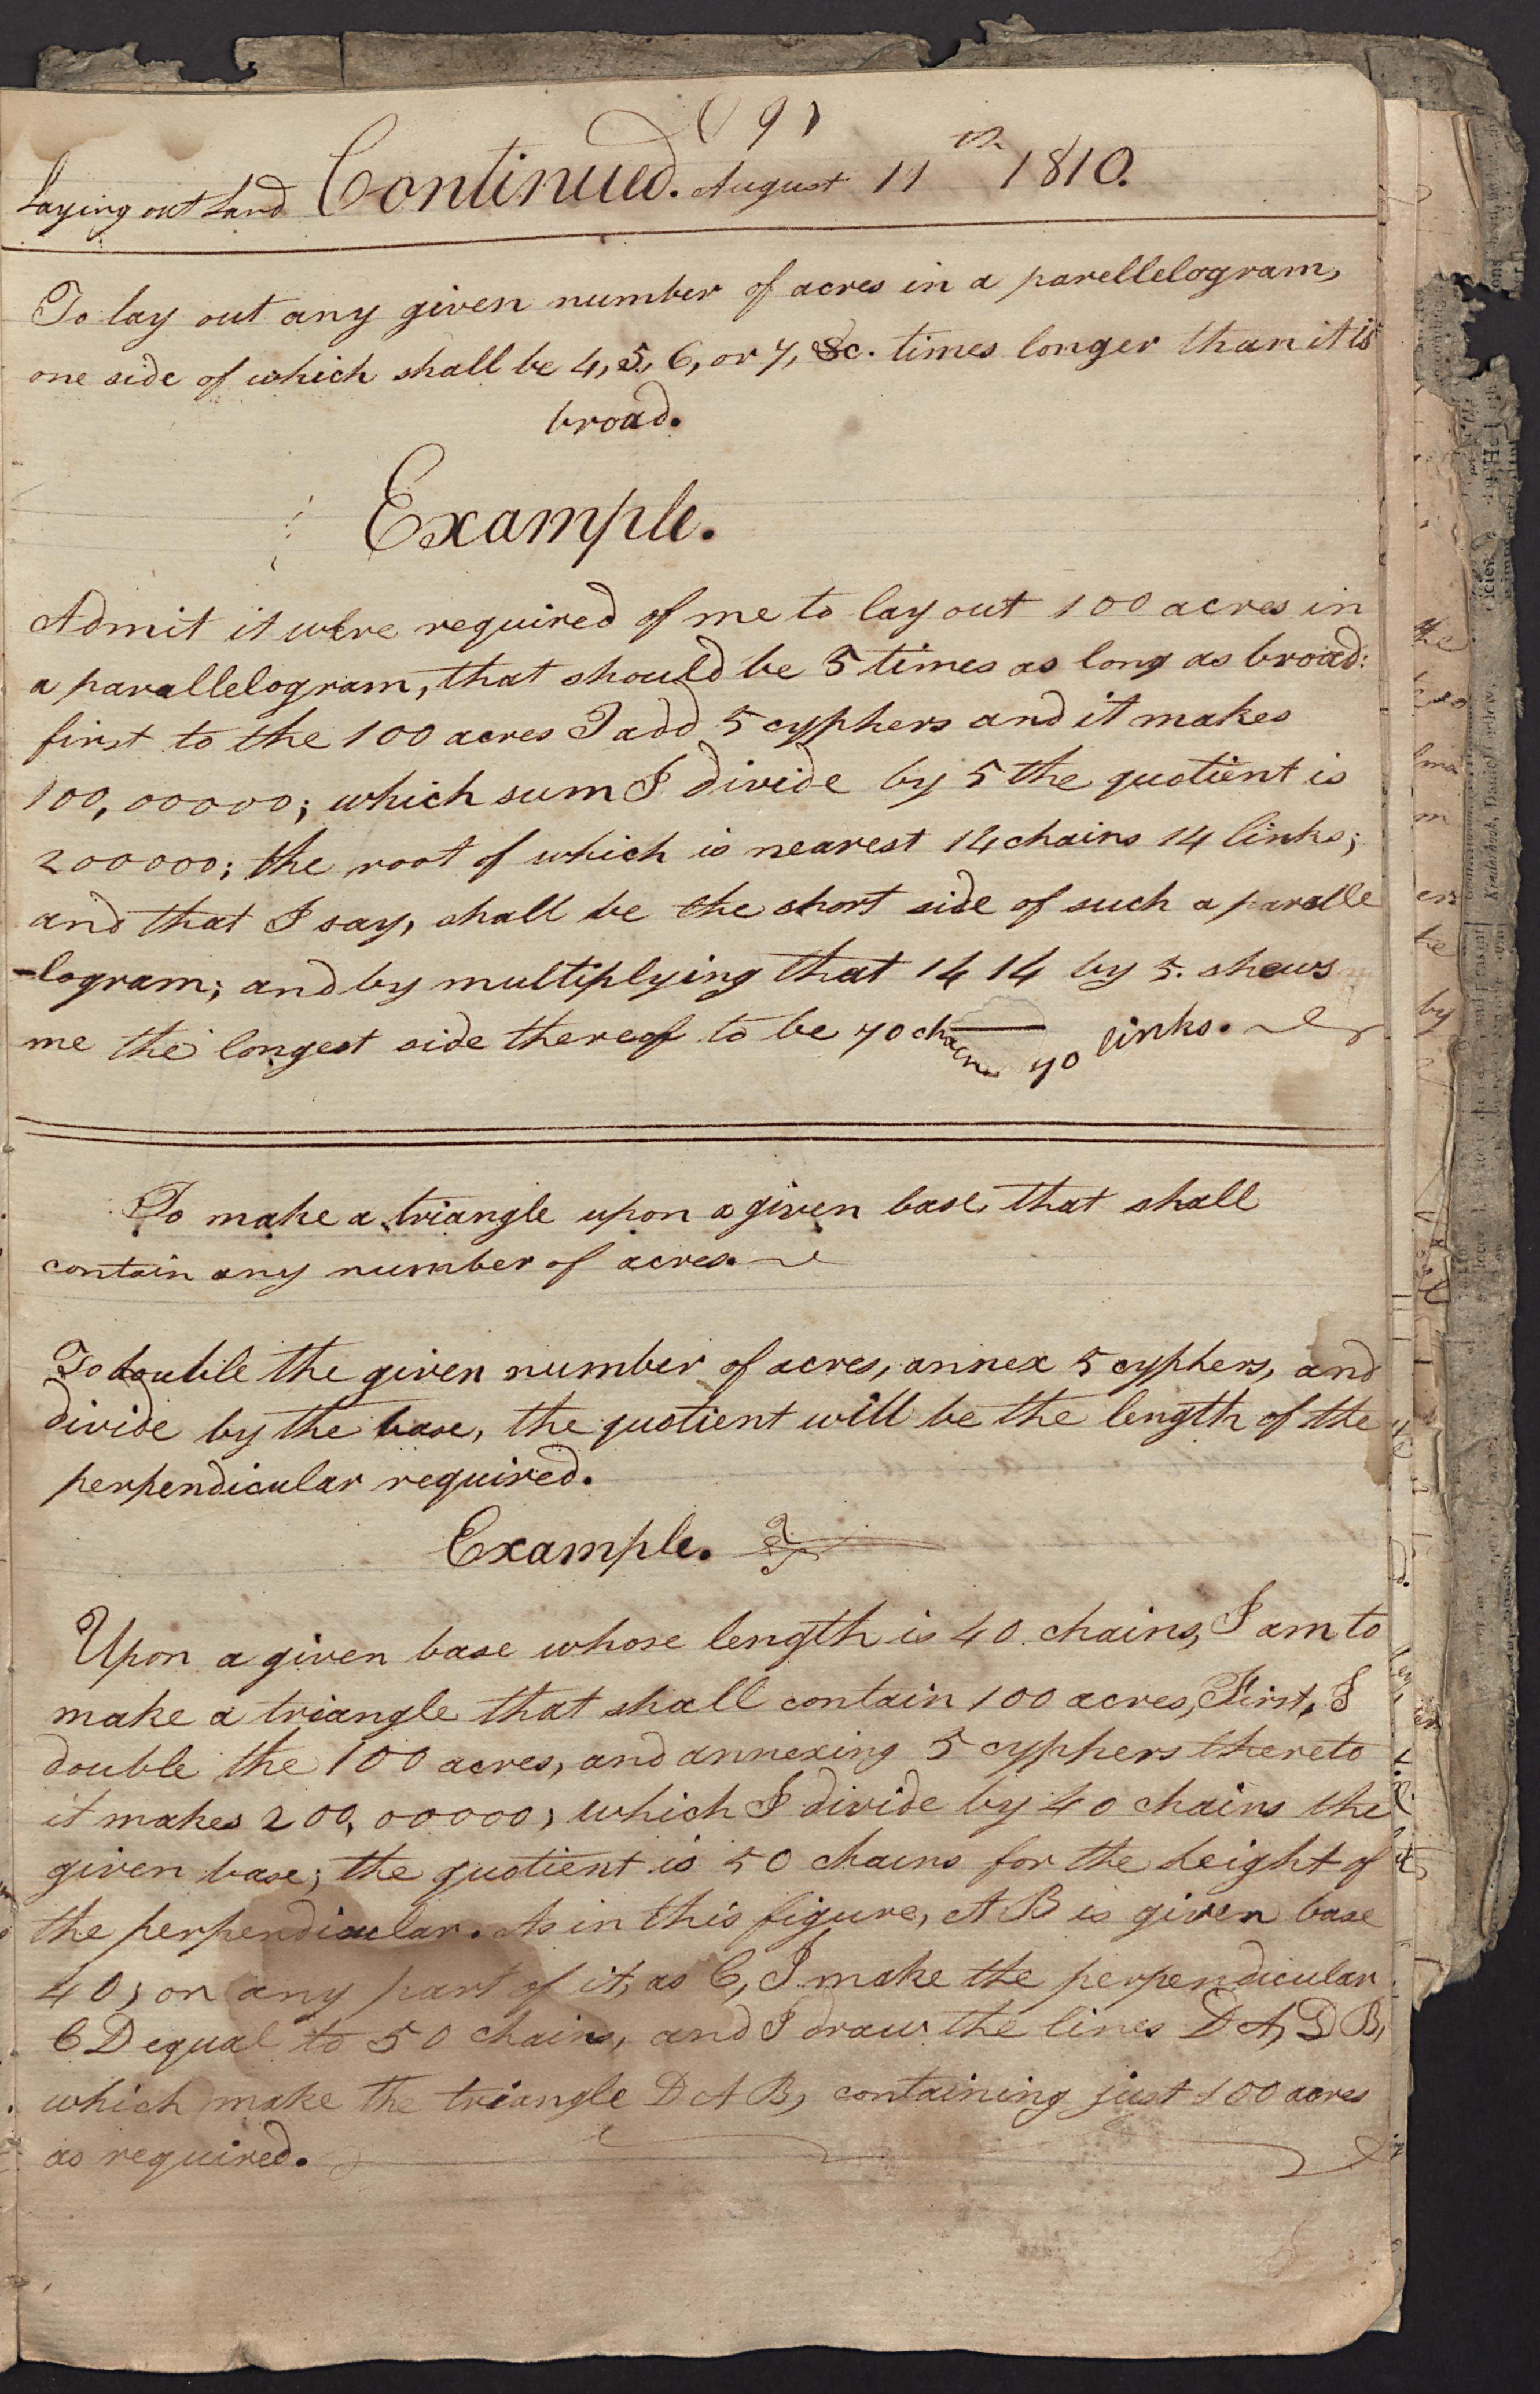 ( 9 )
Laying out Land Continued. August 11th 1810.
To lay out any given number of acres in a parellelogram,
one side of which shall be 4, 5, 6, or 7, &c. times longer than it is
broad.
Example.
Admit it were required of me to lay out 100 acres in
a parallelogram, that should be 5 times as long as broad:
first to the 100 acres I add 5 cyphers and it makes
100,00000; which sum I divide by 5 the quotient is
200000; the root of which is nearest 14 chains 14 links;
and that I say, shall be the short side of such a paralle
-logram; and by multiplying that 14 14 by 5. shews
me the longest side thereof to be 70 chains 70 links.
To make a triangle upon a given base, that shall
contain any number of acres.
To double the given number of acres, annex 5 cyphers, and
divide by the base, the quotient will be the length of the
perpendicular required.
Example.
Upon a given base whose length is 40 chains, I am to
make a triangle that shall contain 100 acres, First, I
double the 100 acres, and annexing 5 cyphers thereto
it makes 200,00000, which I divide by 40 chains the
given base; the quotient is 50 chains for the height of
the perpendicular. As in this figure, A B is given base
40, on any part of it, as C, I make the perpendicular
C D equal to 50 chains, and I draw the lines D A, D B,
which make the triangle D A B, containing just 100 acres
as required.